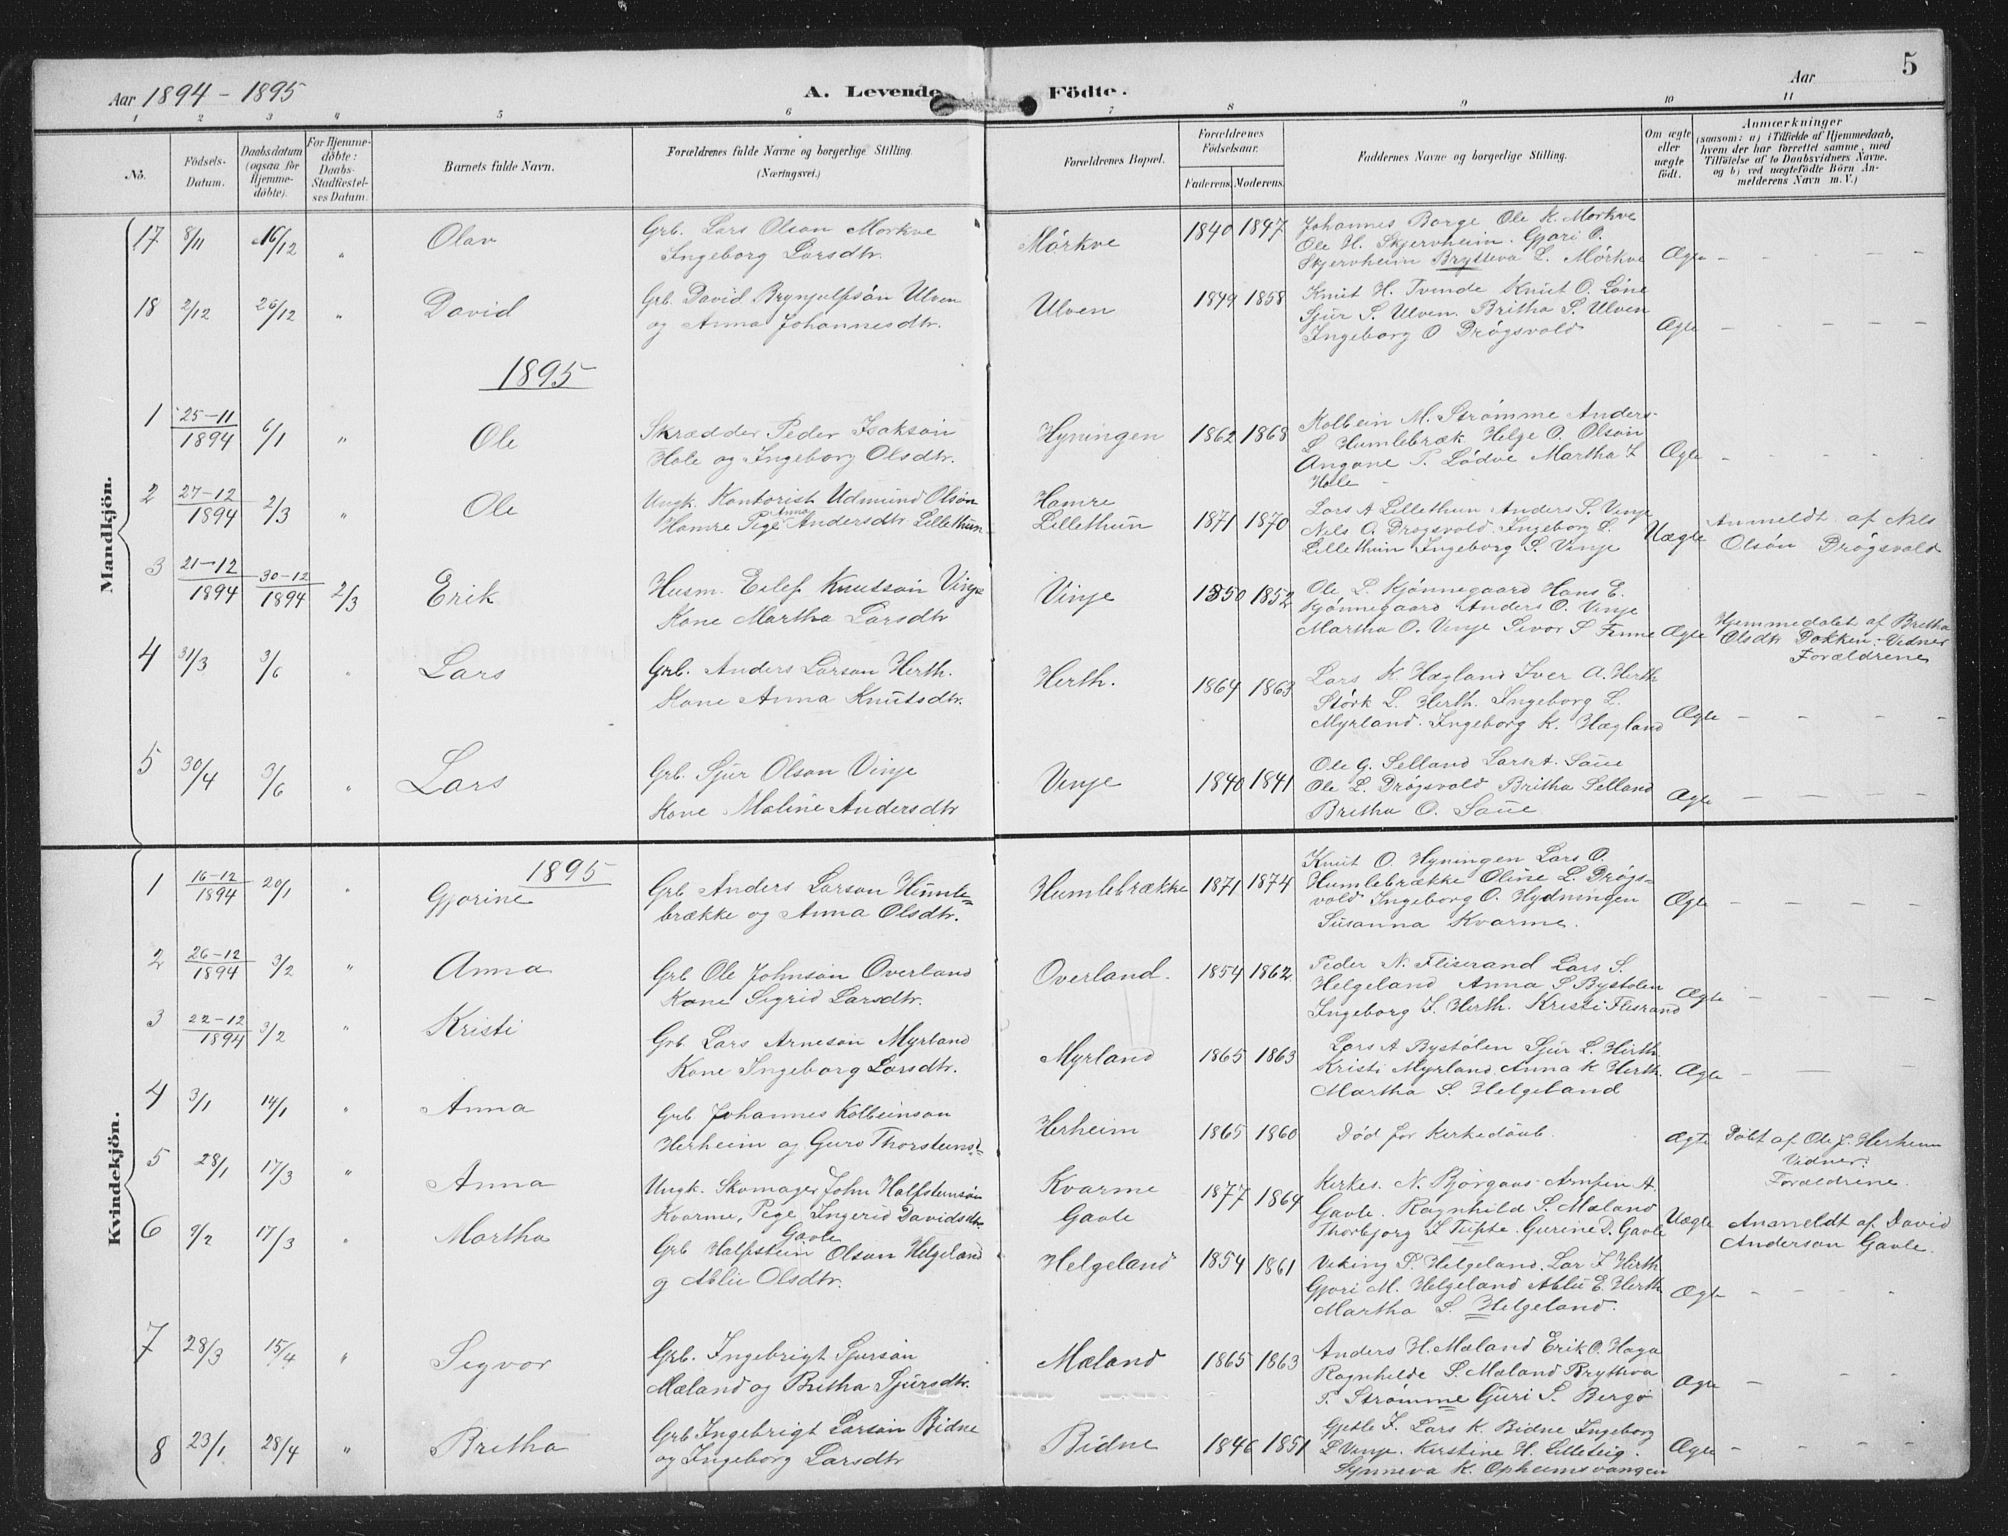 5
Aar 1894 - 1895
A. Levende
Födte.
Aar
1 2 3 4 5 6 7 8 9 10 11
No.
Födsels-Datum.
Daabsdatum (ogsaa for Hjemmedöbte).
For Hjemmedöbte: Daabs-Stadfæstelses Datum.
Barnets fulde Navn.
Forældrenes fulde Navne og borgerlige Stilling. (Næringsvei.)
Forældrenes Bopæl.
Forældrenes Födselsaar.
Faderens. Moderens.
Faddernes Navne og borgerlige Stilling.
Om ægte eller uægte födt.
Anmærkninger
(saasom: a) i Tilfælde af Hjemmedaab, hvem der har forrettet samme, med Tilföielse af to Daabsvidners Navne, og b) ved uægtefödte Börn Anmelderens Navn m. V.)
Mandkjön.
17 8/11 16/12 " Olav
Grb. Lars Olson Mørkve
Ingeborg Larsdtr.
Mørkve 1840 1847
Johannes Borge Ole K. Mørkve
Ole H. Skjervheim. Gjori O.
Skjervheim Brytteva L. Mørkve
Ægte – – – –
18 2/12 26/12 " David
Grb David Brynjulfsøn Ulven
og Anna Johannesdtr.
Ulven 1849 1858
Knut H. Tvinde Knut O. Løne
Sjur S. Ulven. Britha S. Ulven
Ingeborg O Drøgsvold
Ægte – – – –
1895
1 25-11/1894 6/1 " Ole
Skrædder Peder Isaksøn
Hole og Ingeborg Olsdtr.
Hyningen 1862 1868
Kolbein M. Strømme Anders
L Humlebræk Helge O. Olsøn
P. Lødve Martha I
Hole
Ægte – – – –
2 27-12/1894 2/3 " Ole
Ungk. Kontorist Udmund Olsøn
Hamre Pige Anna Andersdtr Lillethun
Hamre
Lillethun 1871 1870
Lars A Lillethun Anders S. Vinje
Nils O. Drøgsvold. Ingeborg L.
Lillethun Ingeborg S. Vinje
Uægte
Anmeldt af Nils
Olsøn Drøgsvold
3 21-12/1894 30-12/1894 2/3 Erik
Husm. Eilef Knutsøn Vinje
Kone Martha Larsdtr
Vinje 1850 1852
Ole L. Kjønnegaard Hans E.
Kjønnegaard Anders O. Vinje
Martha O. Vinje Sivor S Finne
Ægte
Hjemmedøbt af Britha
Olsdtr Dokken. Vidner
Forældrene
4 31/3 3/6 " Lars
Grb. Anders Larson Herth.
Kone Anna Knutsdtr.
Herth. 1864 1863
Lars K Hægland Iver A. Herth
Størk L. Herth. Ingeborg L.
Myrland. Ingeborg K. Hægland
Ægte – – – –
5 30/4 3/6 " Lars
Grb. Sjur Olson Vinje
Kone Maline Andersdtr
Vinje 1840 1841
Ole G. Selland Lars A. Saue
Ole L. Drøgsvold Britha Selland
Britha O. Saue
Ægte – – – –
Kvindekjön.
1895
1 16-12/1894 20/1 " Gjorine
Grb Anders Larson Humle-
brække og Anna Olsdtr.
Humlebrække 1871 1874
Knut O. Hyningen Lars O.
Humlebrække Oline L. Drøgs-
vold Ingeborg O. Hydningen
Susanna Kvarme.
Ægte – – – –
2 26-12/1894 3/2 " Anna
Grb Ole Johnson Overland
Kone Sigrid Larsdtr.
Overland. 1854 1862
Peder N. Fliserand Lars S.
Helgeland Anna S Bystølen
Ingeborg I. Herth. Kristi Flisrand
Ægte – – – –
3 22-12/1894 3/2 " Kristi
Grb Lars Arneson Myrland
Kone Ingeborg Larsdtr.
Myrland 1865 1863
Lars A Bystølen Sjur L. Hirth
Kristi Myrland, Anna K Herth.
Martha S. Helgeland
Ægte – – –
4 3/1 14/1 " Anna
Grb Johannes Kolbeinson
Herheim og Guro Thorsteinsd.
Herheim 1865 1860
Død før Kirkedaab.
Ægte
Døbt af Ole J. Herheim
Vidner:
Forældrene.
5 28/1 17/3 " Anna
Ungk. Skomager John Halfsteinsøn
Kvarme, Pige Ingerid Davidsdtr
Gavle
Kvarme
Gavle 1877 1864
Kirkes. N. Bjørgaas Arnfin A.
Gavle. Ragnhild S. Mæland
Thorbjørg I Tufte Gurine D. Gavle
Uægte
Anmeldt af David
Anderson Gavle.
6 9/2 17/3 " Martha
Grb Halfstein Olson Helgeland
og Ablie Olsdtr.
Helgeland 1854 1861
Viking P. Helgeland. Lar I Hirth
Gjori M. Helgeland Ablie E. Herth
Martha S. Helgeland.
Ægte – – –
7 28/3 15/4 " Sigvor
Grb. Ingebrigt Sjurson
Mæland og Britha Sjursdtr.
Mæland 1865 1863
Anders H. Mæland Erik O. Haga
Ragnhilde S. Mæland Bryttiva
P. Strømme Guri S. Bergo
Ægte – – – –
8 23/1 28/4 " Britha
Grb Ingebrigt Larson Bidne
og Ingeborg Larsdtr
Bidne 1846 1851
Gjetle I. Lars K. Bidne Ingeborg
L Vinje. Kirstine H. Lilleteig.
Synneva K. Opheimsvangen
Ægte – – – –